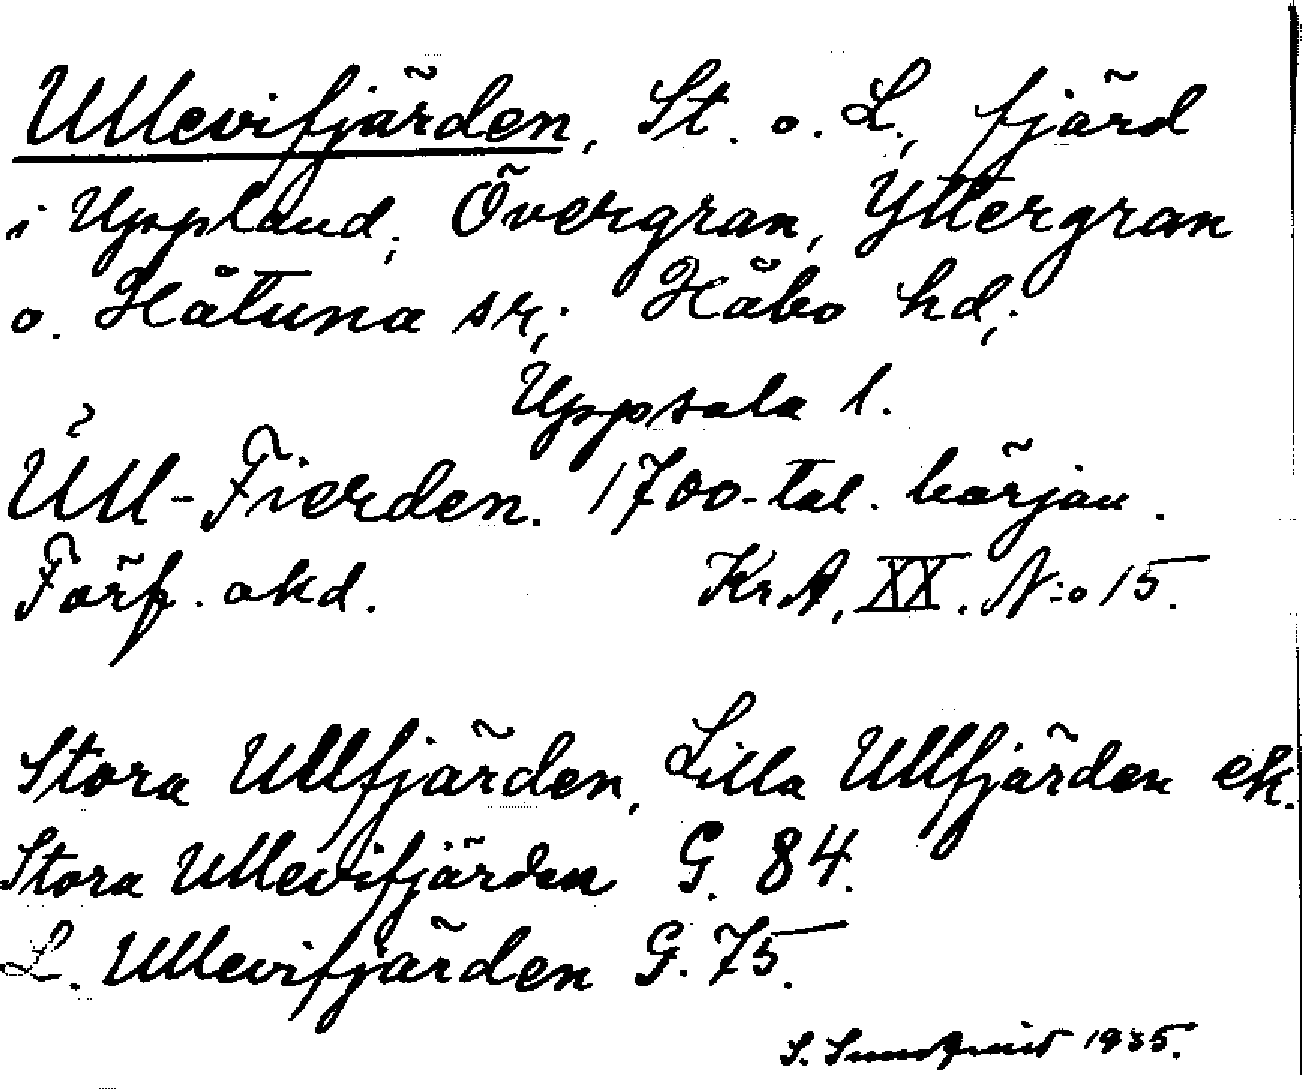 Ullevifjärden, St. o. L., fjärd
i Uppland, Övergran, Yttergran
o. Håtuna sr; Håbo hd;
Uppsala l.
Ull-Fierden. 1700-tal. början.
Förf. okd. Kr.A. XX. N:o 15.
Stora Ullfjärden, Lilla Ullfjärden ek.
Stora Ullevifjärden G. 84.
L. Ullevifjärden G. 75.
S. Sundqvist 1935.